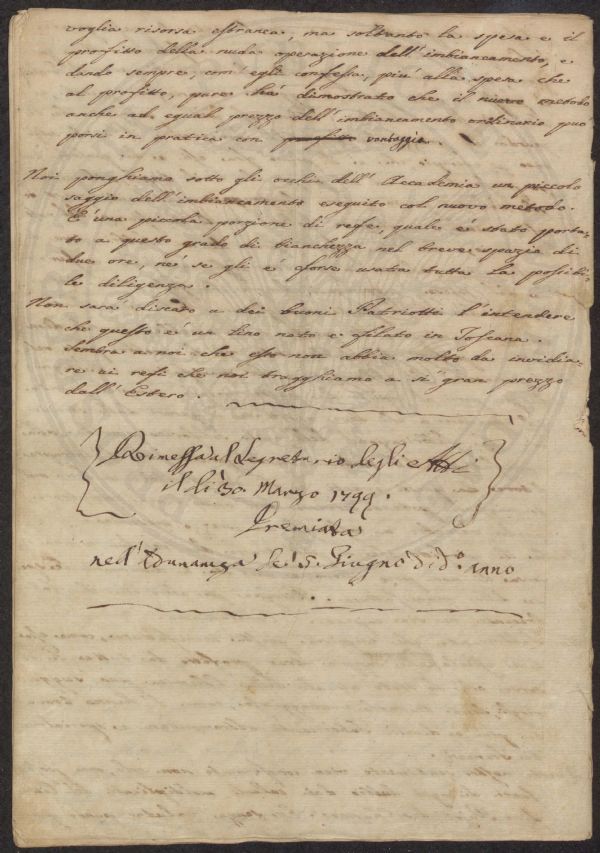 voglia risorsa estranea, ma soltanto la spesa e il
profitto della nuda operazione dell'imbiancamento, e
dando sempre, com'egli confessa, piu' alla spesa che
al profitto, pure ha' dimostrato che il nuovo metodo
anche ad equal prezzo dell'imbiancamento ordinario puo
porsi in pratica con profitto vantaggio.
Noi ponghiamo sotto gli occhi dell'Accademia un piccolo
saggio dell'imbiancamento eseguito col nuovo metodo.
E' una piccola porzione di refe, quale e' stato porta-
to a questo grado di bianchezza nel breve spazio di
due ore, ne' se gli e' forse usata tutta la possibi-
le diligenza.
Non sara discaro a dei buoni Patriotti l'intendere
che questo e' un lino nato e filato in Toscana.
Sembra a noi che esso non abbia molto da invidia-
re ai refi che noi tragghiamo a si gran prezzo
dall'Estero.
Rimessa al Segretario degli Atti
il dì 30. Marzo 1799.
Premiata
nell'Adunanza de' 5. Giugno di d.º anno